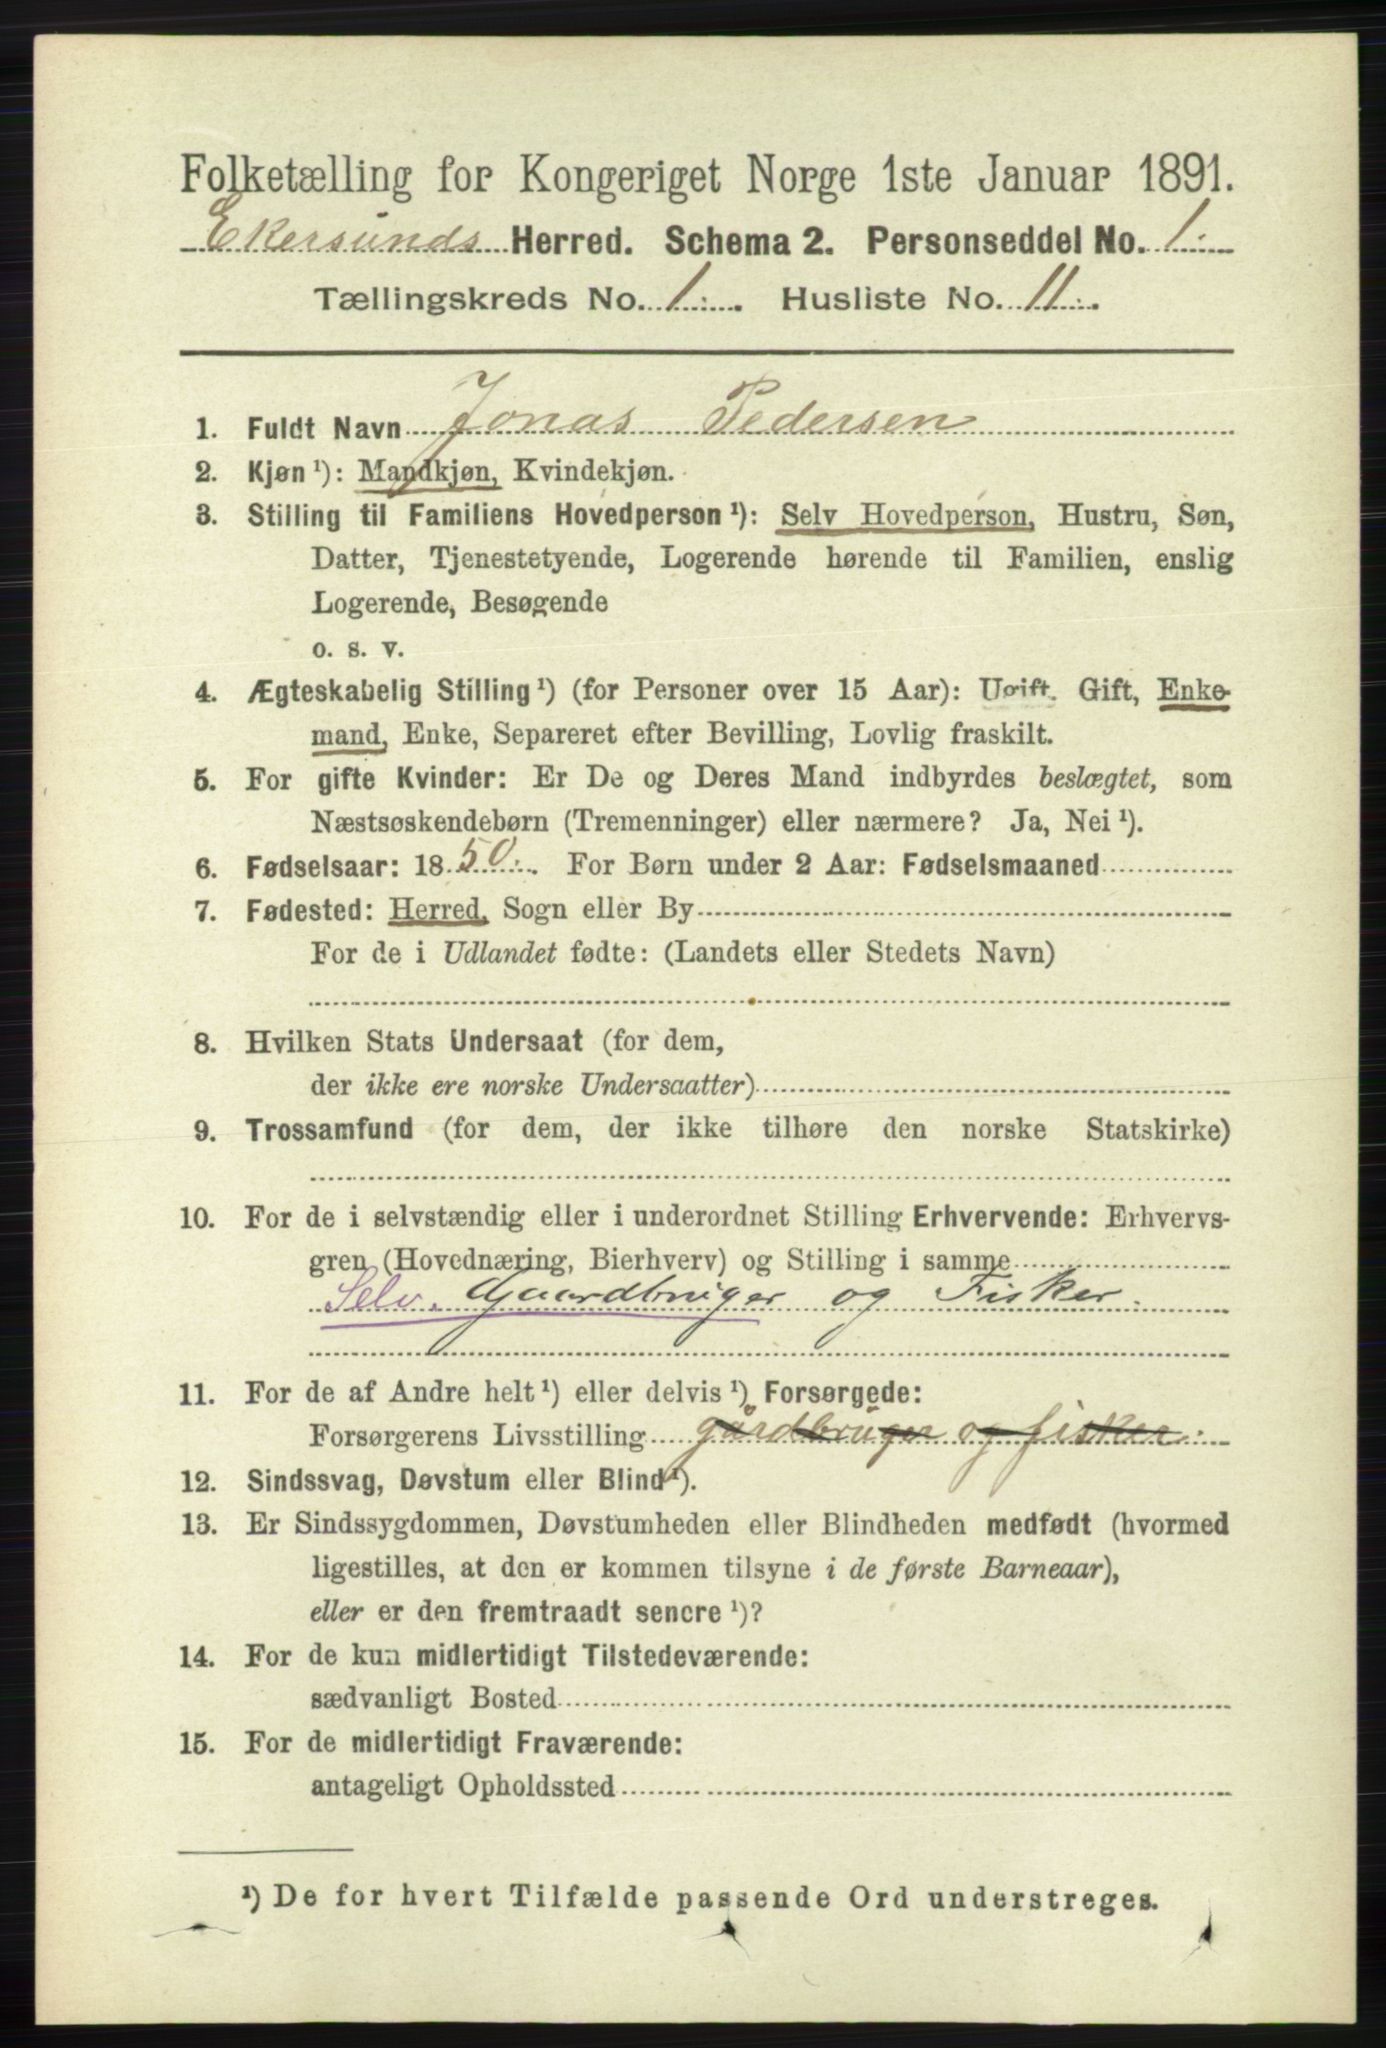 Folketælling for Kongeriget Norge 1ste Januar 1891.
Ekersunds Herred. Schema 2. Personseddel No. 1.
Tællingskreds No. 1. Husliste No. 11.
1. Fuldt Navn Jonas Pedersen
2. Kjøn¹): Mandkjøn, Kvindekjøn.
3. Stilling til Familiens Hovedperson¹): Selv Hovedperson, Hustru, Søn,
Datter, Tjenestetyende, Logerende hørende til Familien, enslig
Logerende, Besøgende
o. s. v.
4. Ægteskabelig Stilling¹) (for Personer over 15 Aar): Ugift, Gift, Enke-
mand, Enke, Separeret efter Bevilling, Lovlig fraskilt.
5. For gifte Kvinder: Er De og Deres Mand indbyrdes beslægtet, som
Næstsøskendebørn (Tremenninger) eller nærmere? Ja, Nei¹).
6. Fødselsaar: 1850. For Børn under 2 Aar: Fødselsmaaned
7. Fødested: Herred, Sogn eller By
For de i Udlandet fødte: (Landets eller Stedets Navn)
8. Hvilken Stats Undersaat (for dem,
der ikke ere norske Undersaatter)
9. Trossamfund (for dem, der ikke tilhøre den norske Statskirke)
10. For de i selvstændig eller i underordnet Stilling Erhvervende: Erhvervs-
gren (Hovednæring, Bierhverv) og Stilling i samme
Selv. Gaardbruger og Fisker.
11. For de af Andre helt¹) eller delvis¹) Forsørgede:
Forsørgerens Livsstilling gårdbruger og fisker.
12. Sindssvag, Døvstum eller Blind¹).
13. Er Sindssygdommen, Døvstumheden eller Blindheden medfødt (hvormed
ligestilles, at den er kommen tilsyne i de første Barneaar),
eller er den fremtraadt senere¹)?
14. For de kun midlertidigt Tilstedeværende:
sædvanligt Bosted
15. For de midlertidigt Fraværende:
antageligt Opholdssted
¹) De for hvert Tilfælde passende Ord understreges.